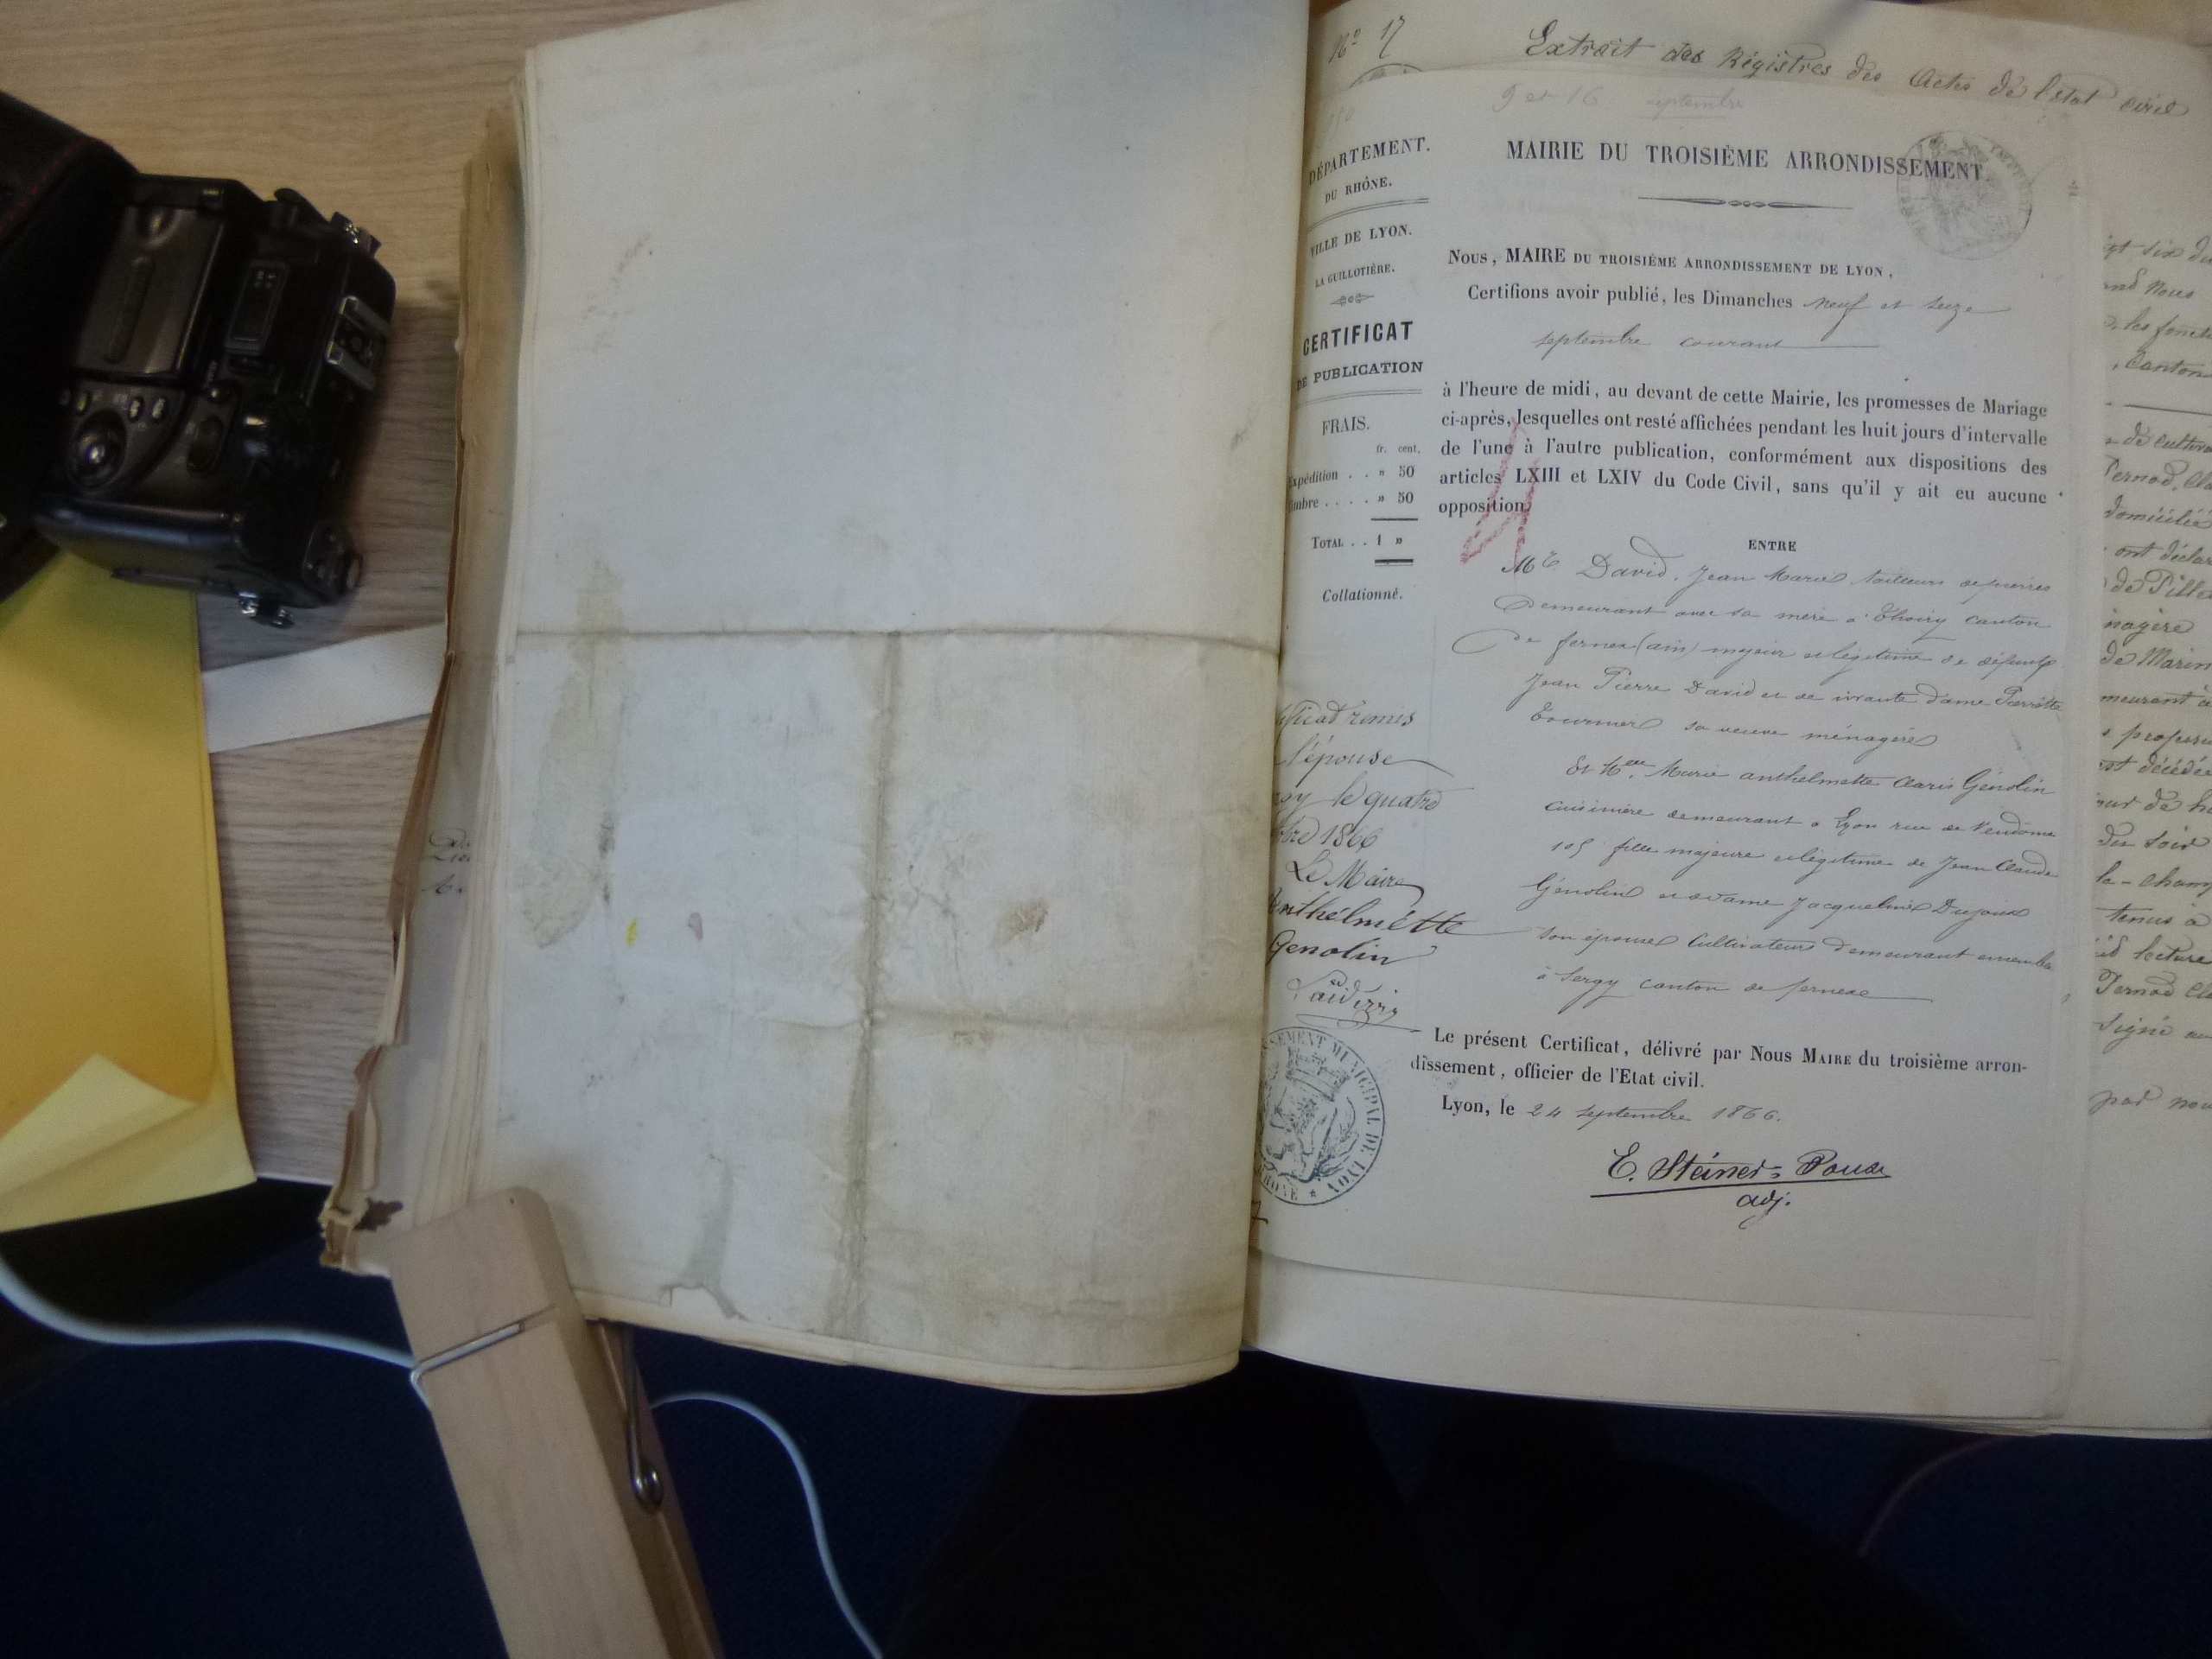 No 17
Extrait des Régistres des Actes de l'état civil
9 et 16 septembre
DÉPARTEMENT.
DU RHÔNE.
VILLE DE LYON.
LA GUILLOTIÈRE.
CERTIFICAT
DE PUBLICATION
FRAIS.
fr. cent.
Expédition . . » 50
Timbre . . . . » 50
TOTAL . . 1 »
Collationné.
remis
l'épouse
le quatre
1866
Le Maire
Anthélmétte
Genolin
MAIRIE DU TROISIÈME ARRONDISSEMENT
NOUS, MAIRE DU TROISIÈME ARRONDISSEMENT DE LYON,
Certifions avoir publié, les Dimanches neuf et seize
septembre courant
à l'heure de midi, au devant de cette Mairie, les promesses de Mariage
ci-après, lesquelles ont resté affichées pendant les huit jours d'intervalle
de l'une à l'autre publication, conformément aux dispositions des
articles LXIII et LXIV du Code Civil, sans qu'il y ait eu aucune
opposition
ENTRE
Mr David, Jean Marie tailleur de pierres
demeurant avec sa mère à Thoiry canton
de fernex (ain) majeur et légitime de défunt
Jean Pierre David et de vivante dame Pierrette
Tournier sa veuve ménagère
Et Melle Marie anthelmette Claris Génolin
cuisinière demeurant à Lyon rue de Vendôme
105 fille majeure et légitime de Jean Claude
Génolin et dame Jacqueline Dujoux
son épouse Cultivateurs demeurant ensemble
à Sergy canton de fernex
Le présent Certificat, délivré par Nous MAIRE du troisième arron-
dissement, officier de l'Etat civil.
Lyon, le 24 septembre 1866.
E. Steiner-Pons
adj.
MUNICIPAL DE LYON
RHONE
six du
nous
les foncti
Canton
de cultiva
Pernod, Cla
domiciliée
ont déclar
de Marin
meurant à
décédée
du soir
la-champ
tenus à
lecture
Pernod Cla
signé
par nous